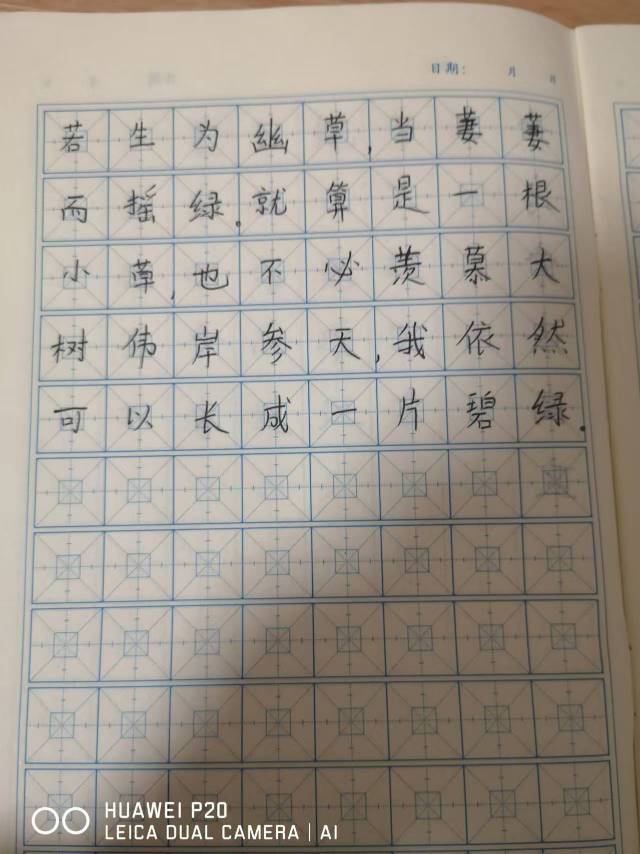 日期: 月 日
若生为幽草,当萋萋
而摇绿。就算是一根
小草,也不必羡慕大
树伟岸参天,我依然
可以长成一片碧绿。
HUAWEI P20
LEICA DUAL CAMERA | AI